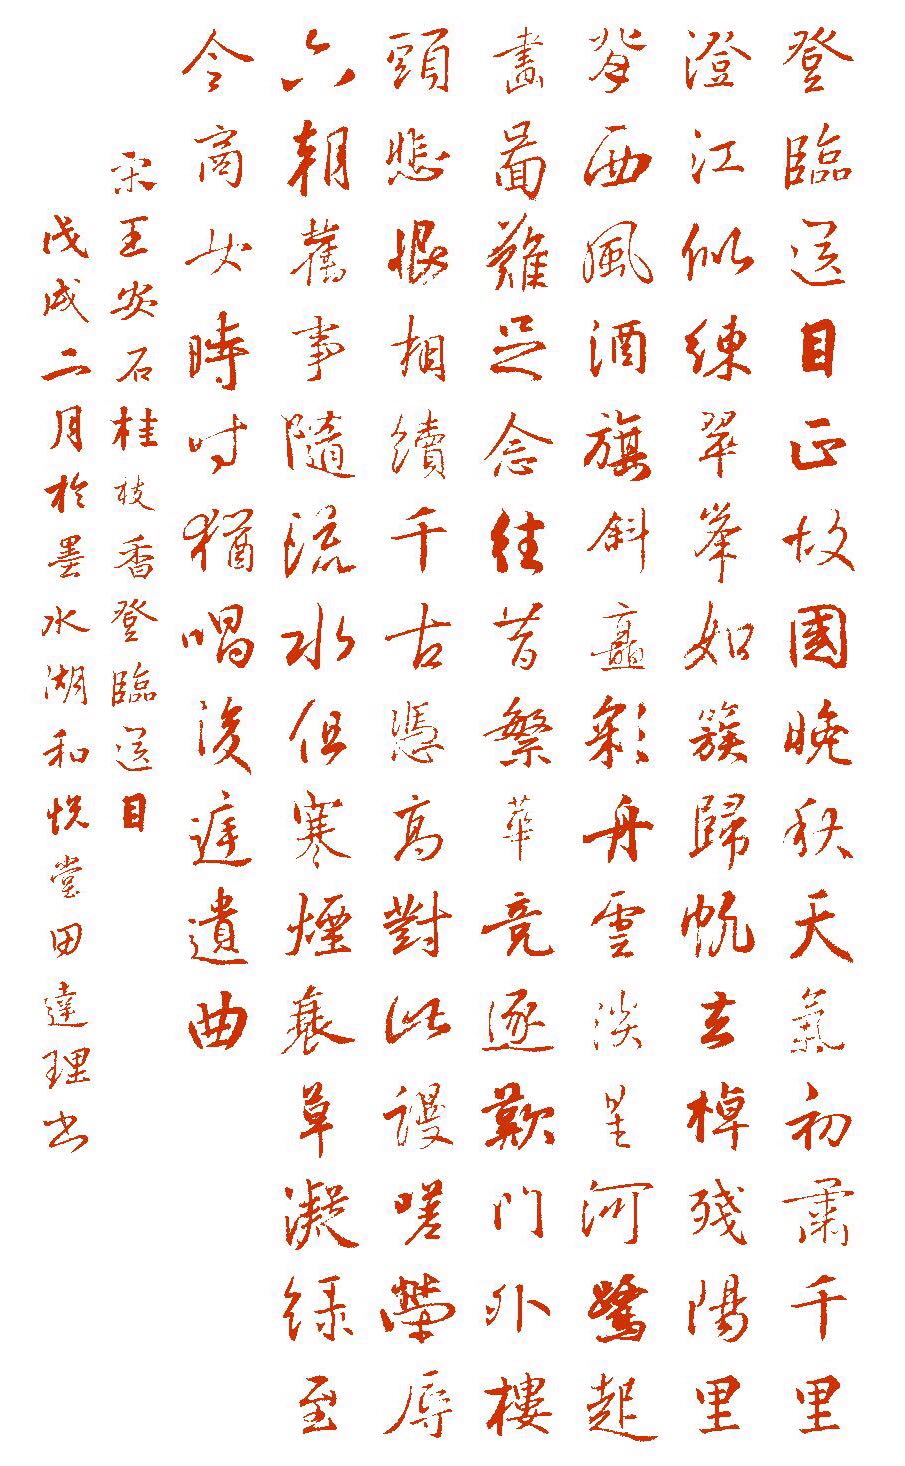 登臨送目正故國晚秋天氣初肅千里
澄江似練翠峯如簇歸帆去棹殘陽里
背西風酒旗斜矗彩舟雲淡星河鷺起
畫圖難足念往昔繁華競逐歎門外樓
頭悲恨相續千古憑高對此謾嗟榮辱
六朝舊事隨流水但寒煙衰草凝綠至
今商女時時猶唱後庭遺曲
宋王安石桂枝香登臨送目
戊戌二月於墨水湖和悅堂田達理书